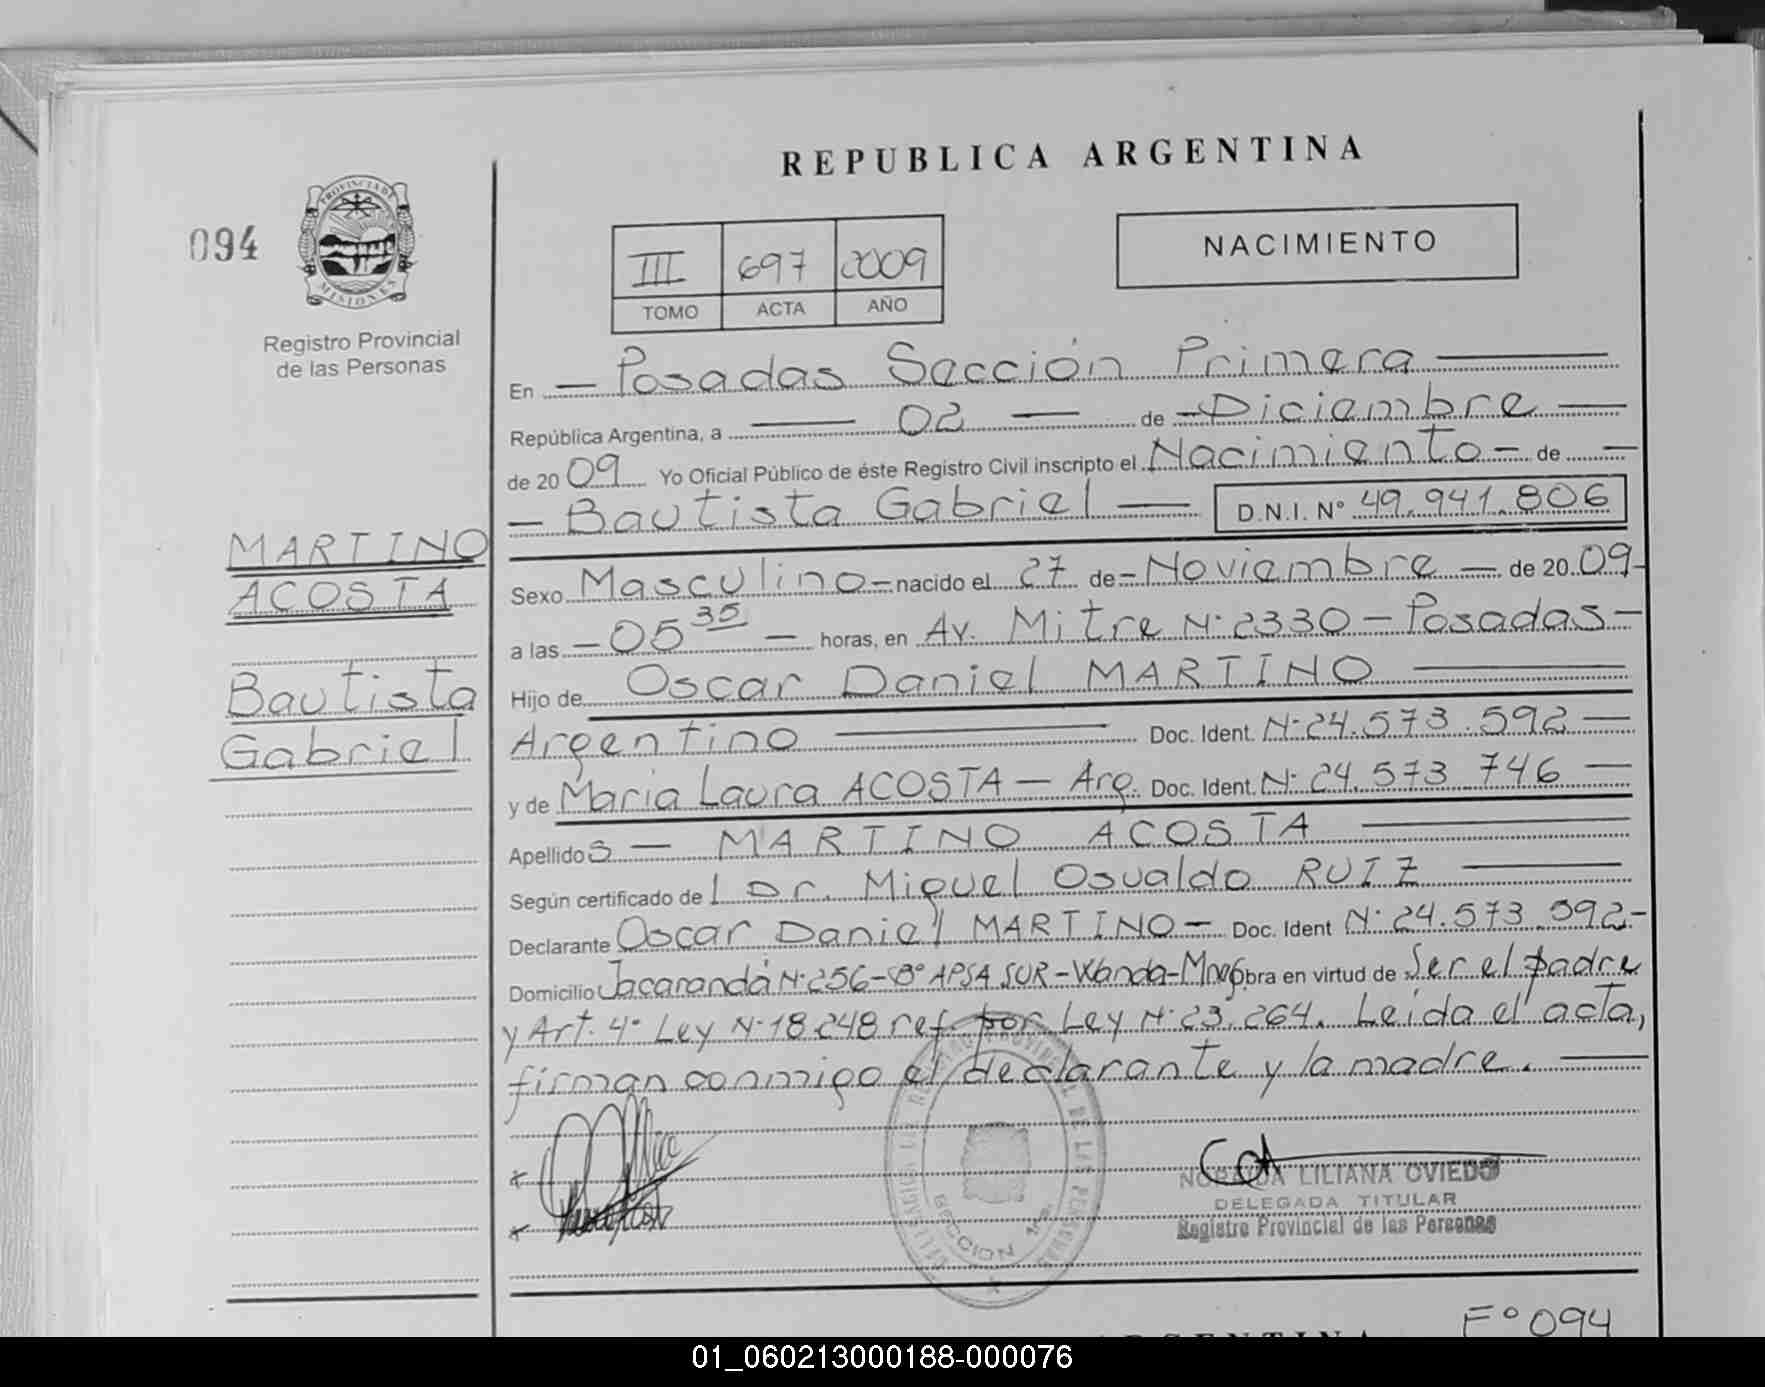 REPUBLICA ARGENTINA
094
PROVINCIA DE
MISIONES
Registro Provincial
de las Personas
III 697 2009
TOMO ACTA AÑO
NACIMIENTO
MARTINO
ACOSTA
Bautista
Gabriel
En — Posadas Sección Primera —
República Argentina, a — 02 — de — Diciembre —
de 2009 Yo Oficial Público de éste Registro Civil inscripto el Nacimiento — de —
— Bautista Gabriel — D.N.I. N° 49.941.806
Sexo Masculino — nacido el 27 de — Noviembre — de 2009 —
a las — 05 35 — horas, en Av. Mitre N° 2330 — Posadas —
Hijo de Oscar Daniel MARTINO —
Argentino — Doc. Ident. N° 24.573.592 —
y de Maria Laura ACOSTA — Arg. Doc. Ident. N° 24.573.746 —
Apellidos — MARTINO ACOSTA —
Según certificado de l Dr. Miguel Osvaldo RUIZ —
Declarante Oscar Daniel MARTINO — Doc. Ident N° 24.573.592 —
Domicilio Jacarandá N° 256 — B° APSA SUR — Wanda — Mnes obra en virtud de Ser el padre
y Art. 4° Ley N° 18.248 ref. por Ley N° 23.264. Leida el acta,
firman conmigo el declarante y la madre. —
SECCION 1ra.
LILIANA OVIEDO
DELEGADA TITULAR
Registro Provincial de las Personas
F° 094
ARGENTINA
01_060213000188-000076